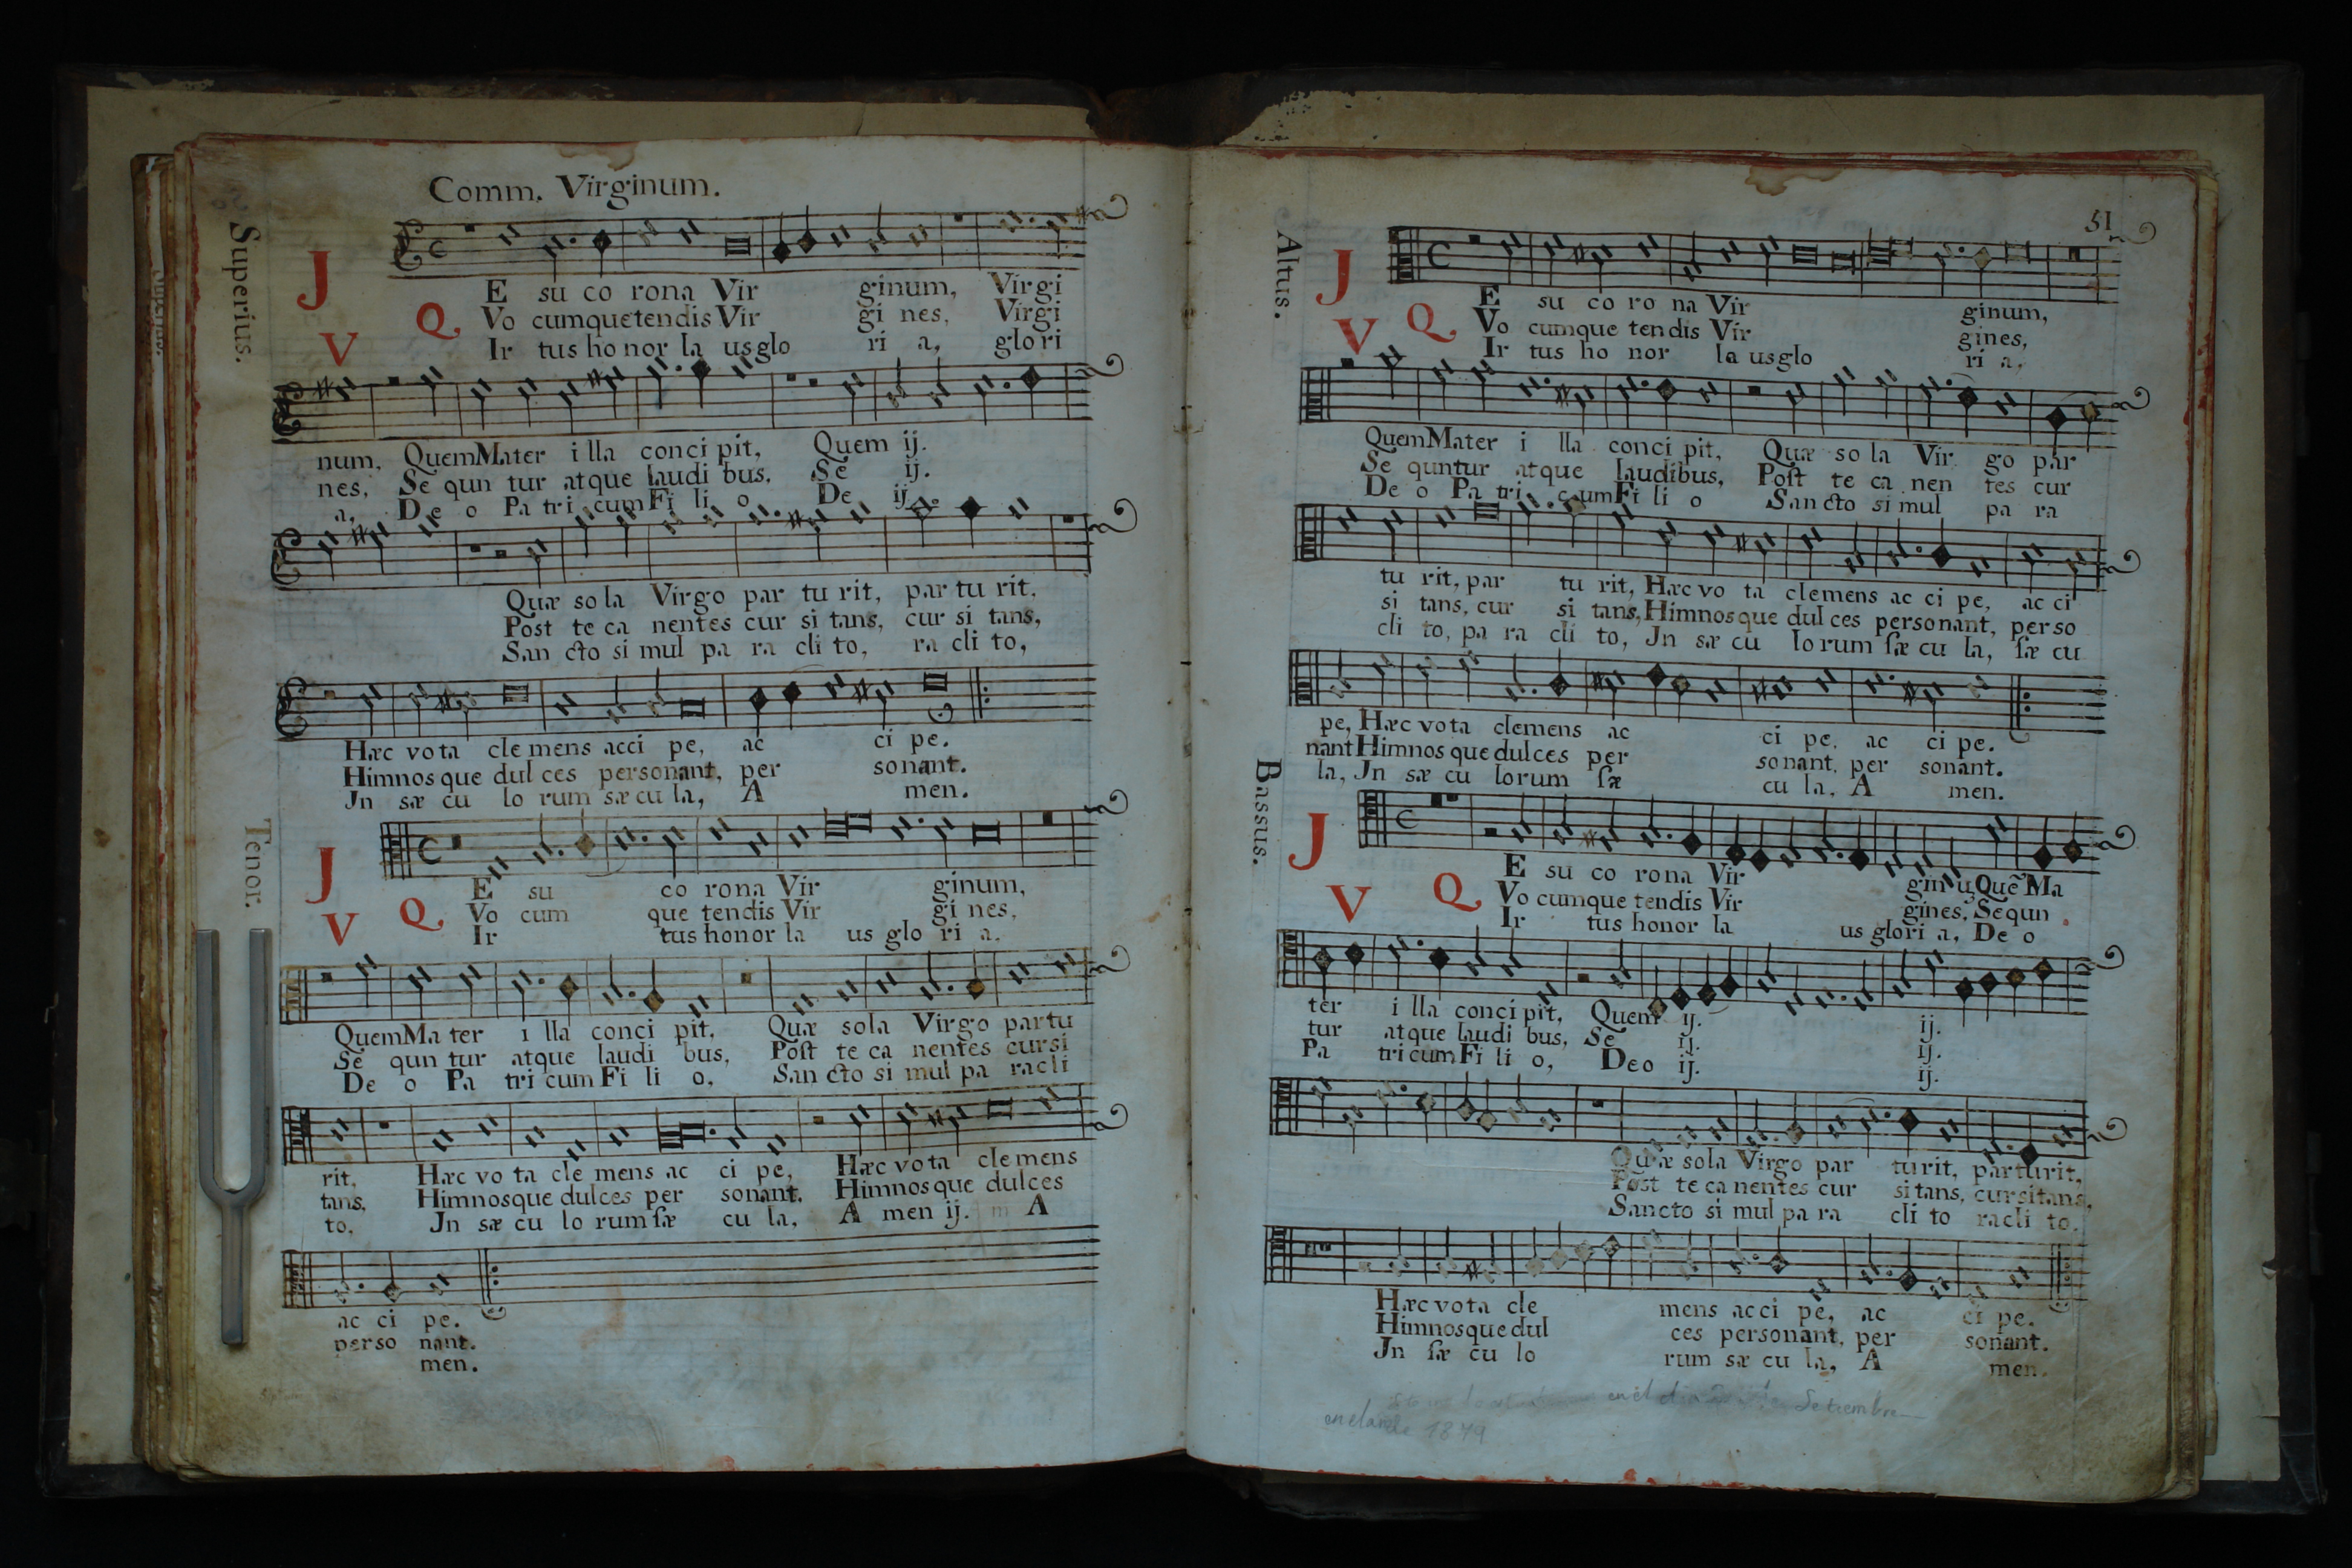 Comm. Virginum.
Superius.
J E su co rona Vir ginum, Virgi
Q Vo cumque tendis Vir gi nes, Virgi
V Ir tus ho nor la us glo ri a, glo ri
num, Quem Mater i lla conci pit, Quem ij.
nes, Se qun tur atque laudi bus, Se ij.
a, De o Pa tri cum Fi li o, De ij.
Quæ so la Virgo par tu rit, par tu rit,
Post te ca nentes cur si tans, cur si tans,
San cto si mul pa ra cli to, ra cli to,
Hæc vo ta cle mens acci pe, ac ci pe.
Himnos que dul ces personant, per sonant.
Jn sæ cu lo rum sæ cu la, A men.
Tenor.
J E su co rona Vir ginum,
Q Vo cum que tendis Vir gi nes,
V Ir tus honor la us glo ri a.
Quem Ma ter i lla conci pit, Quæ sola Virgo partu
Se qun tur atque laudi bus, Post te ca nentes cursi
De o Pa tri cum Fi li o, San cto si mul pa racli
rit, Hæc vo ta cle mens ac ci pe, Hæc vota clemens
tans, Himnosque dulces per sonant. Himnosque dulces
to, Jn sæ cu lo rum sæ cu la, A men ij. A
ac ci pe.
perso nant.
men.
51
Altus.
J E su co ro na Vir ginum,
Q Vo cumque tendis Vir gines,
V Ir tus ho nor la us glo ri a,
Quem Mater i lla conci pit, Quæ so la Vir go par
Se quntur atque laudibus, Post te ca nen tes cur
De o Pa tri cum Fi li o San cto si mul pa ra
tu rit, par tu rit, Hæc vo ta clemens ac ci pe, ac ci
si tans, cur si tans, Himnosque dul ces personant, perso
cli to, pa ra cli to, Jn sæ cu lo rum sæ cu la, sæ cu
pe, Hæc vota clemens ac ci pe, ac ci pe.
nant Himnos que dulces per sonant, per sonant.
la, Jn sæ cu lorum sæ cu la, A men.
Bassus.
J E su co rona Vir ginũ, Quẽ Ma
Q Vo cumque tendis Vir gines, Sequn
V Ir tus honor la us glori a, De o
ter i lla conci pit, Quem ij. ij.
tur atque laudi bus, Se ij. ij.
Pa tri cum Fi li o, Deo ij. ij.
Quæ sola Virgo par turit, parturit,
Post te ca nentes cur sitans, cursitans,
Sancto si mul pa ra cli to racli to.
Hæc vota cle mens acci pe, ac ci pe.
Himnosque dul ces personant, per sonant.
Jn sæ cu lo rum sæ cu la, A men.
en el dia Setiembre
1879